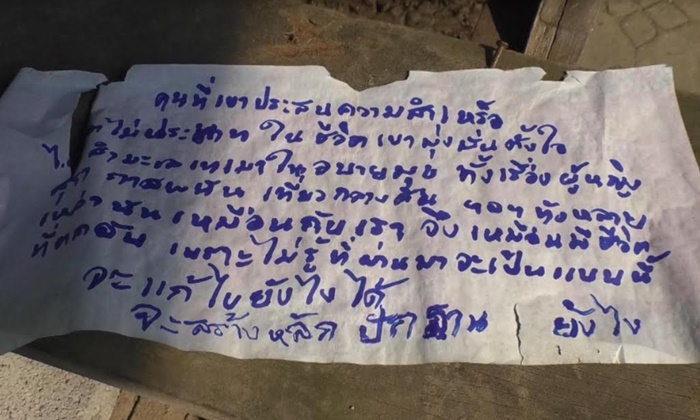 คนที่เขาประสบความสำเหร็จ
ที่ไม่ประมาท ในชีวิตเขามุ่งมั่นตั้งใจ
ไม่สำมะเลเทเมาในอบายมุข ทั้งเรื่องผู้หญิง
สุรา การพนัน เที่ยวกลางคืน ฯลฯ ทั้งหลาย
เหล่านั้น เหมือนกับเรา จึงเหมือนมีชีวิต
ที่ตกอับ เพราะไม่รู้ที่ผ่านมาจะเป็นแบบนี้
จะแก้ไขยังไงได้
จะสร้างหลักปักฐาน ยังไง